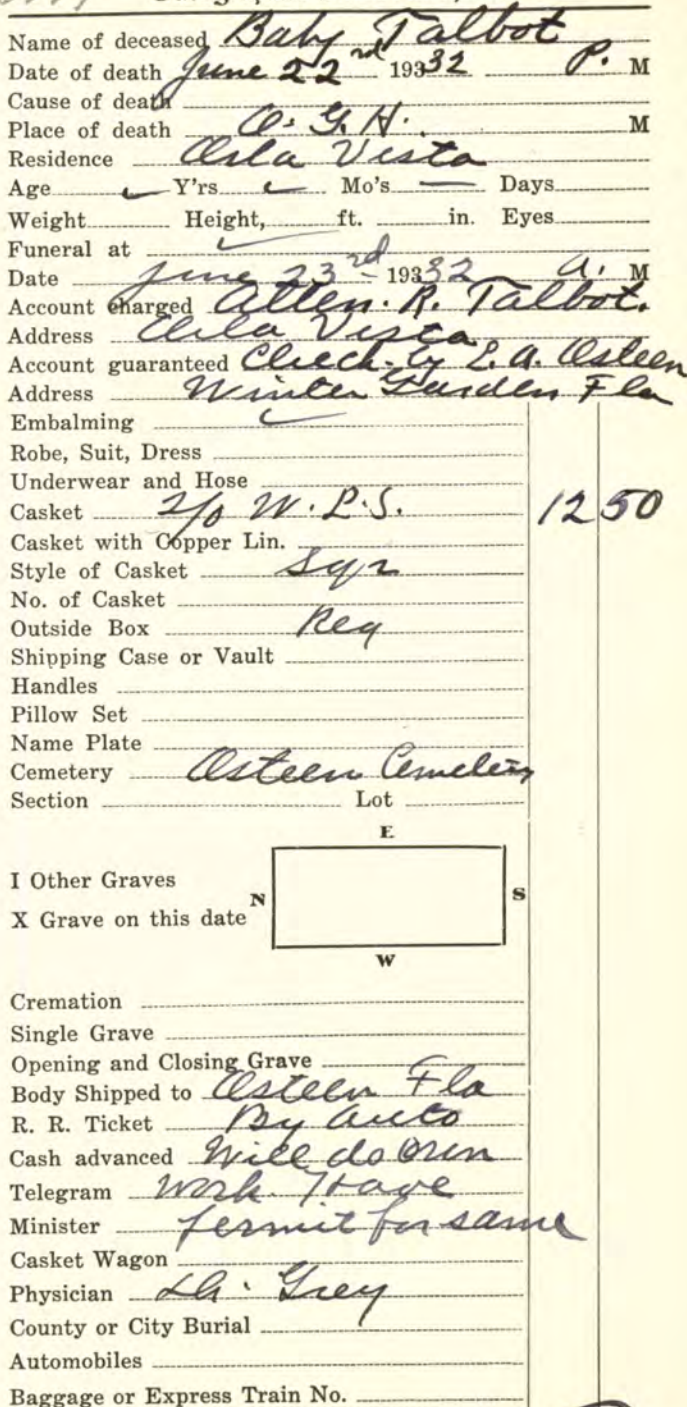 Name of deceased Baby Talbot
Date of death June 22nd 1932 P. M
Cause of death
Place of death O. G. H. M
Residence Orla Vista
Age Y'rs Mo's Days
Weight Height, ft. in. Eyes
Funeral at
Date June 23rd 1932 A. M
Account charged Allen. R. Talbot.
Address Orla Vista
Account guaranteed Check by E. A. Osteen
Address Winter Garden Fla
Embalming
Robe, Suit, Dress
Underwear and Hose
Casket 2/0 W. P. S. 12 50
Casket with Copper Lin.
Style of Casket Sqr
No. of Casket
Outside Box Reg
Shipping Case or Vault
Handles
Pillow Set
Name Plate
Cemetery Osteen Cemetery
Section Lot
E
I Other Graves
N S
X Grave on this date
W
Cremation
Single Grave
Opening and Closing Grave
Body Shipped to Osteen Fla
R. R. Ticket By Auto
Cash advanced Will do own
Telegram work. Have
Minister permit for same
Casket Wagon
Physician Dr. Grey
County or City Burial
Automobiles
Baggage or Express Train No.